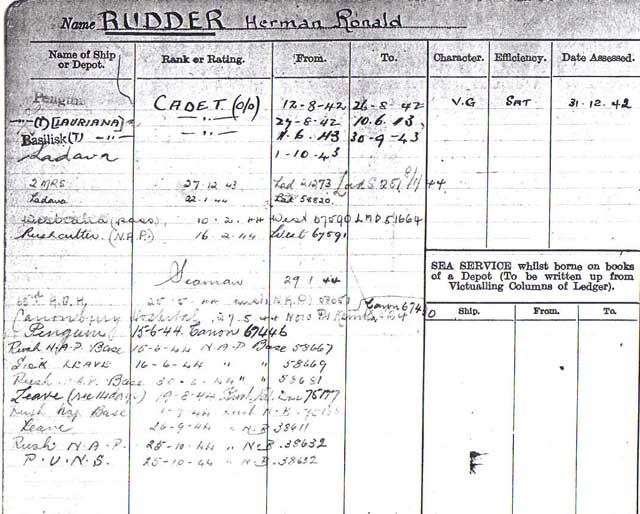 Name RUDDER Herman Ronald
Name of Ship or Depot. Rank or Rating. From. To. Character. Efficiency. Date Assessed.
Penguin CADET (O/O) 12-8-42 26-8-42 V.G SAT 31.12.42
(T) [LAURIANA] 27-8-42 10.6.43
Basilisk (T) 11.6.43 30-9-43
Ladava 1-10-43
2 MRS 27.12.43 Lad 21273
Ladava 22.1.44 Lad 58820
(pass) 10.2.44 West 67590 LMD 51664
Rushcutter (N.A.P.) 16.2.44 West 67591
Seaman 29 1 44
SEA SERVICE whilst borne on books of a Depot (To be written up from Victualling Columns of Ledger).
Ship. From. To.
A.G.H. 25.5.44
Canonbury Hospital 27.5.44
Penguin 15-6-44 Canon 67446
Rush N.A.P. Base 15-6-44 N A P Base 58667
SICK LEAVE 16-6-44 " " 58669
Rush Base 30-6-44 " " 58681
Leave 19-8-44 75177
Rush Nap Base 1-9-44 N.B.
Leave 26-9-44 " N.B. 38611
Rush N.A.P. 25-10-44 " N.B. 38632
P.U.N.S. 25-10-44 " N.B. 38632